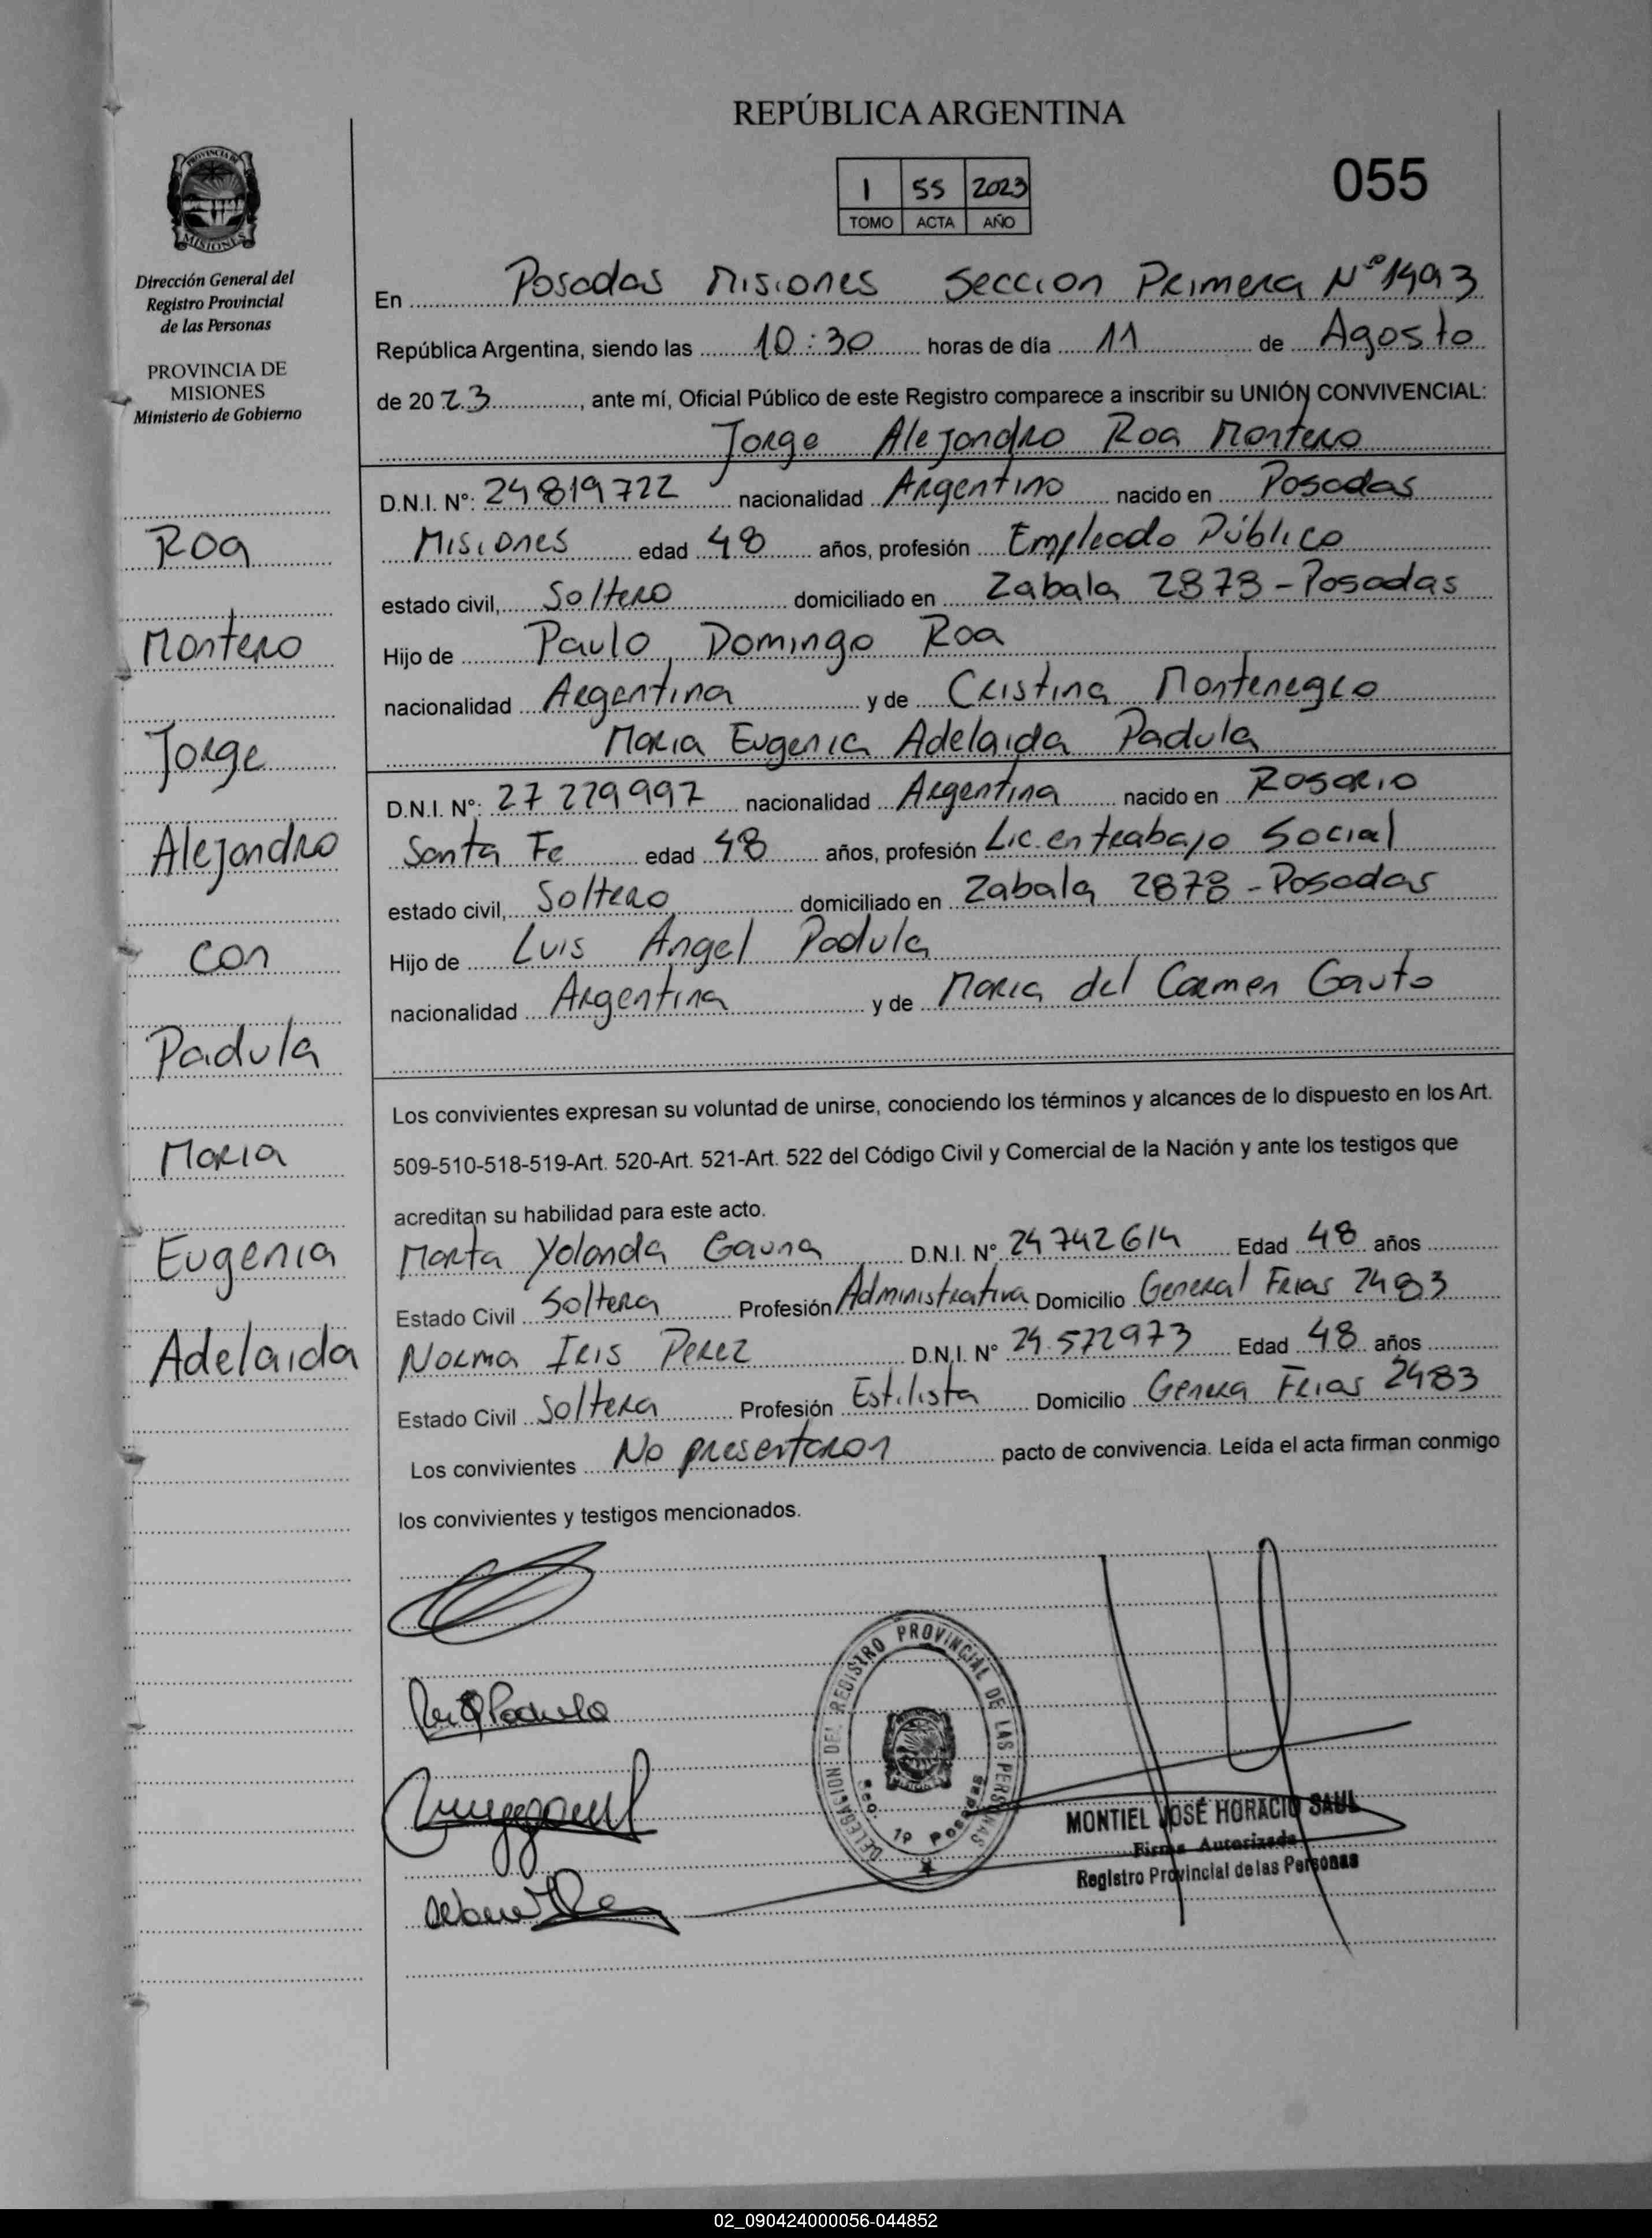 REPÚBLICA ARGENTINA
1 55 2023
TOMO ACTA AÑO
055
PROVINCIA DE
MISIONES
Dirección General del
Registro Provincial
de las Personas
PROVINCIA DE
MISIONES
Ministerio de Gobierno
Roa
Montero
Jorge
Alejandro
con
Padula
Maria
Eugenia
Adelaida
En Posadas Misiones Seccion Primera Nº 1493
República Argentina, siendo las 10:30 horas de día 11 de Agosto
de 2023, ante mí, Oficial Público de este Registro comparece a inscribir su UNIÓN CONVIVENCIAL:
Jorge Alejandro Roa Montero
D.N.I. Nº: 24819722 nacionalidad Argentino nacido en Posadas
Misiones edad 48 años, profesión Empleado Público
estado civil, Soltero domiciliado en Zabala 2878 - Posadas
Hijo de Paulo Domingo Roa
nacionalidad Argentina y de Cristina Montenegro
Maria Eugenia Adelaida Padula
D.N.I. Nº: 27 229997 nacionalidad Argentina nacido en Rosario
Santa Fe edad 48 años, profesión Lic. en trabajo Social
estado civil, Soltero domiciliado en Zabala 2878 - Posadas
Hijo de Luis Angel Padula
nacionalidad Argentina y de Maria del Carmen Gauto
Los convivientes expresan su voluntad de unirse, conociendo los términos y alcances de lo dispuesto en los Art.
509-510-518-519-Art. 520-Art. 521-Art. 522 del Código Civil y Comercial de la Nación y ante los testigos que
acreditan su habilidad para este acto.
Marta Yolanda Gauna D.N.I. Nº 24742614 Edad 48 años
Estado Civil Soltera Profesión Administrativa Domicilio General Frias 2483
Norma Iris Perez D.N.I. Nº 24.572973 Edad 48 años
Estado Civil Soltera Profesión Estilista Domicilio Genera Frias 2483
Los convivientes No presentaron pacto de convivencia. Leída el acta firman conmigo
los convivientes y testigos mencionados.
DELEGACION DEL REGISTRO PROVINCIAL DE LAS PERSONAS
Sec. 1º Posadas
MONTIEL JOSÉ HORACIO SAUL
Firma Autorizada
Registro Provincial de las Personas
02_090424000056-044852